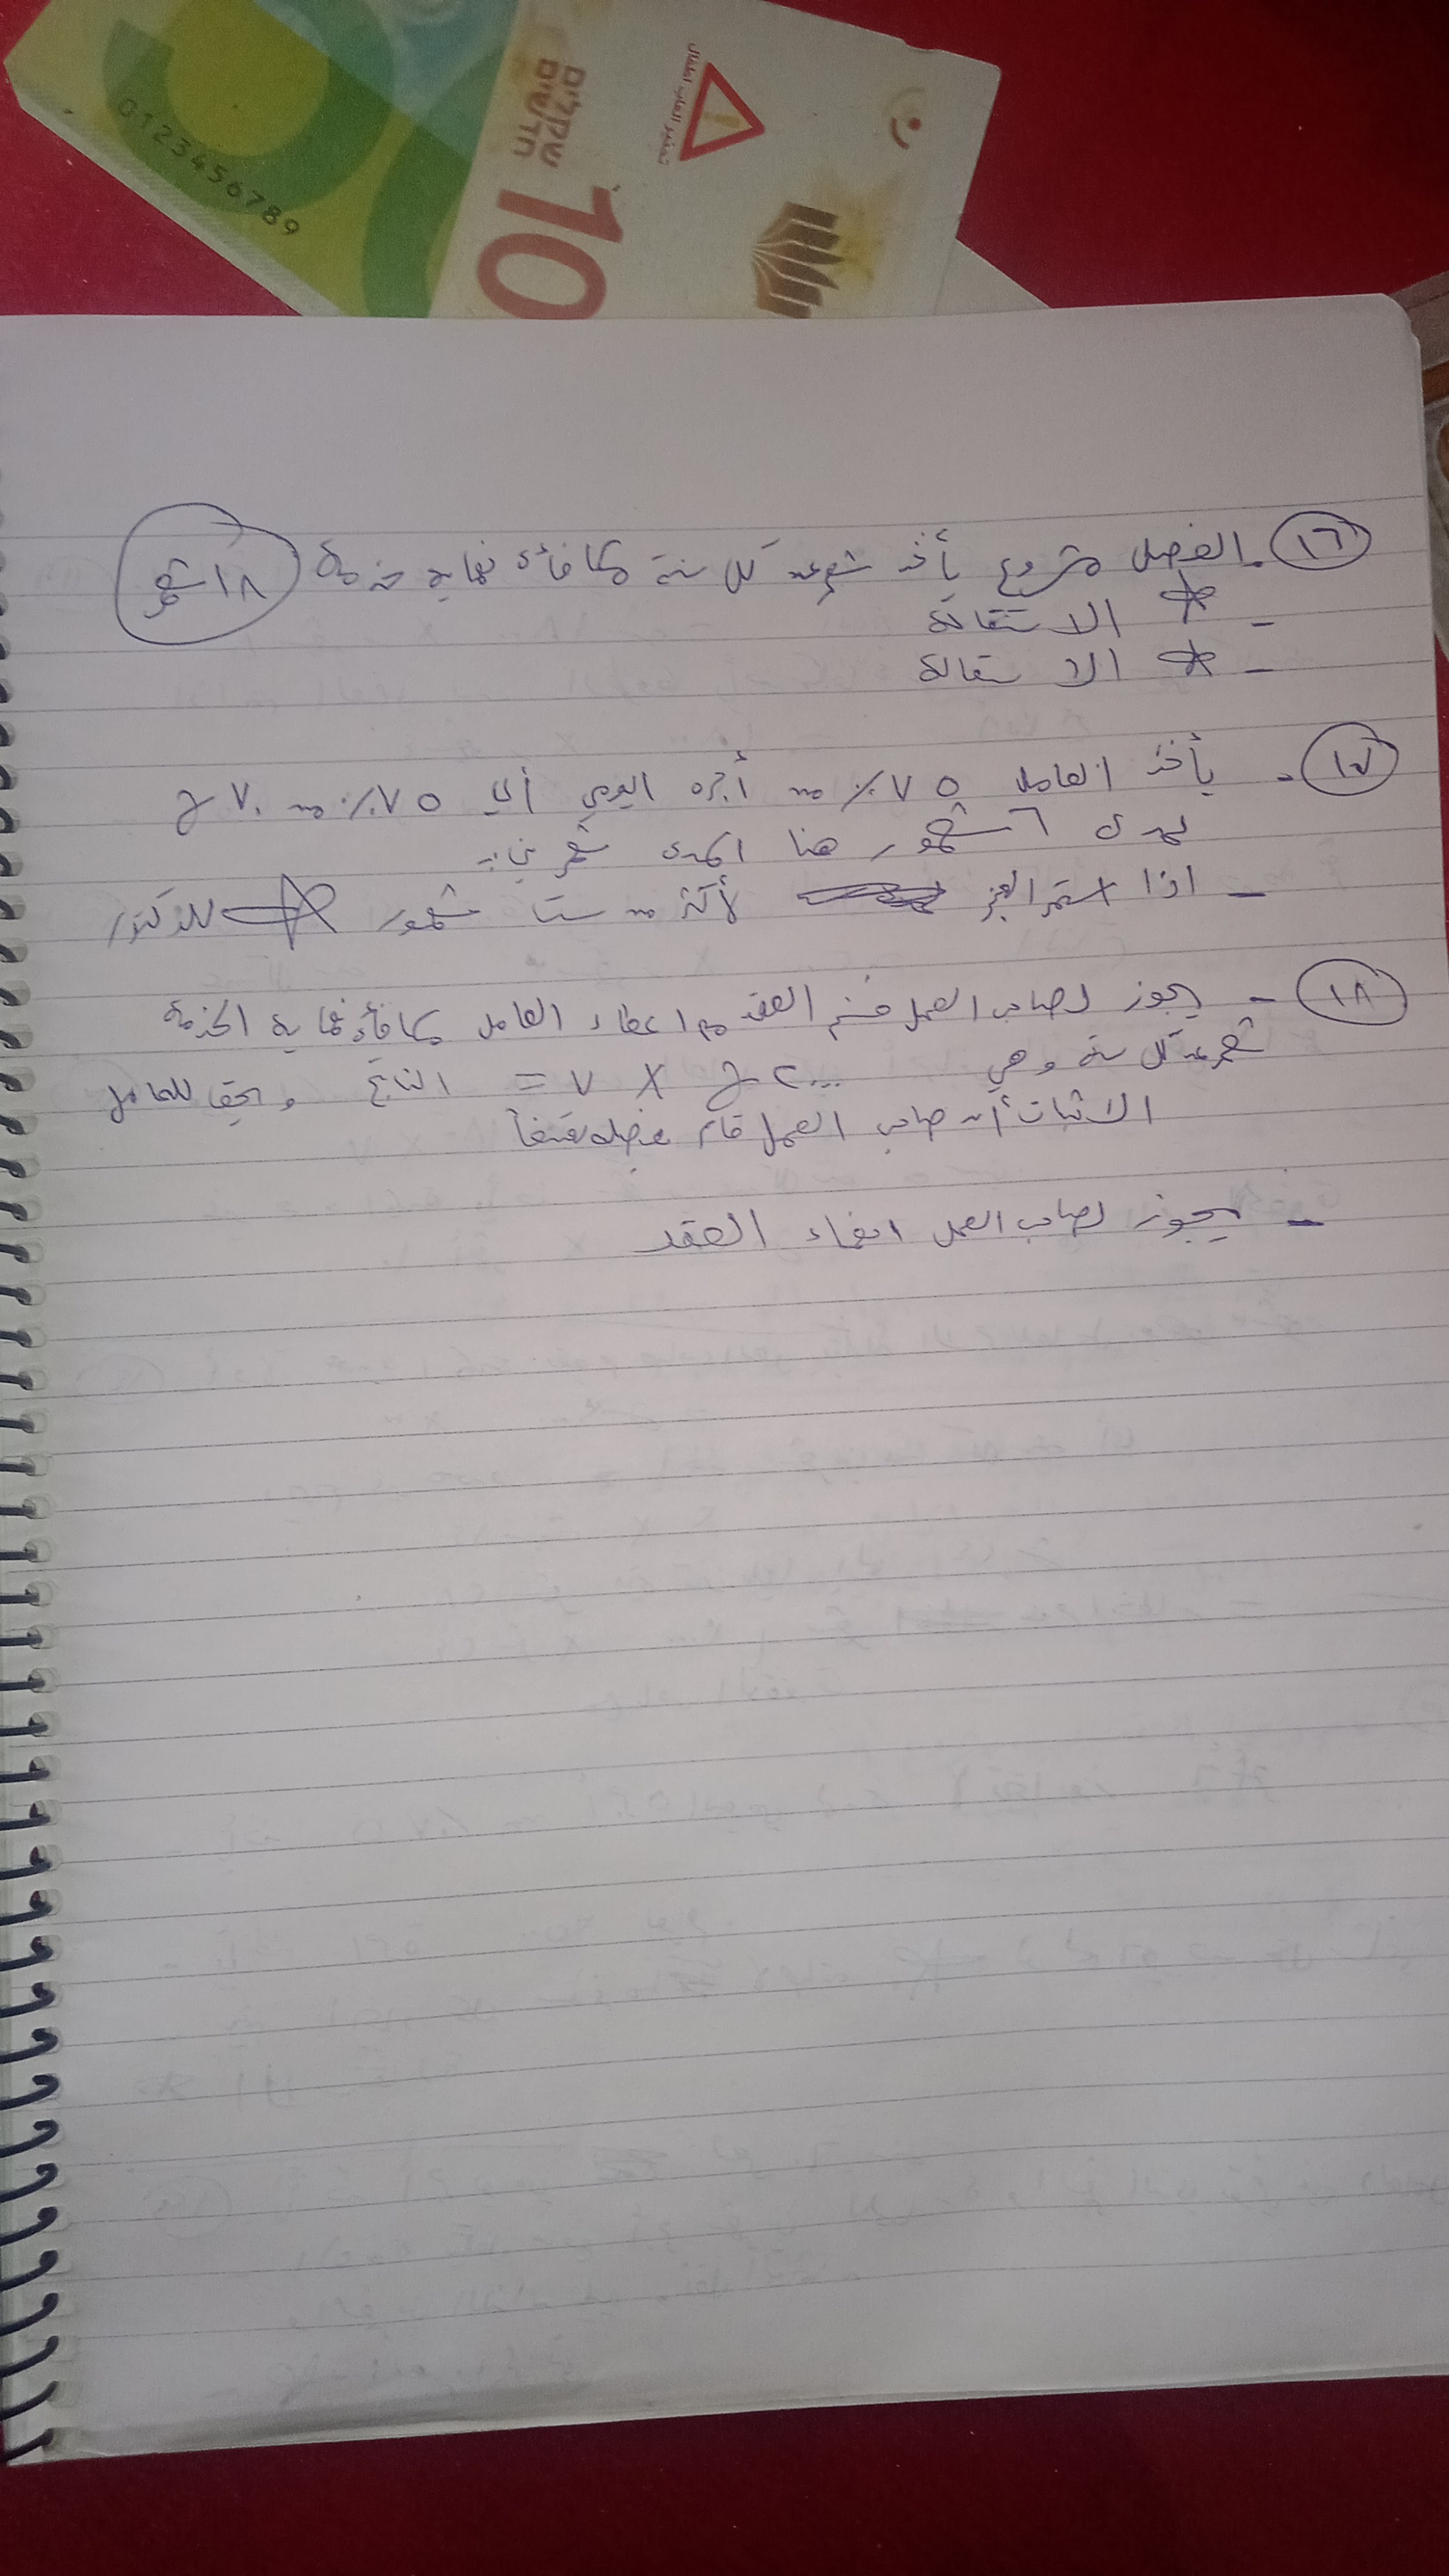 تحذير العاب اطفال
שקלים
חדשים
10
0123456789
١٦ - الفصل مشروع يأخذ شهر عن كل سنة مكافأة نهاية خدمة ١٨ شهر
- * الاستقالة
- * الاستقالة
١٧ - يأخذ العامل ٧٥٪ من أجره اليومي أي ٧٥٪ من ٧٠ ج
لمدة ٦ شهور هنا المدة شهرين :-
- اذا استمر العجز لأكثر من ست شهور * للدكتور
١٨ - يجوز لصاحب العمل فسخ العقد مع اعطاء العامل مكافأة نهاية الخدمة
شهر عن كل سنة وهي ٢٠٠٠ ج × ٧ = الناتج ويحق للعامل
الاثبات أن صاحب العمل قام بفصله تعسفاً
- يجوز لصاحب العمل انهاء العقد